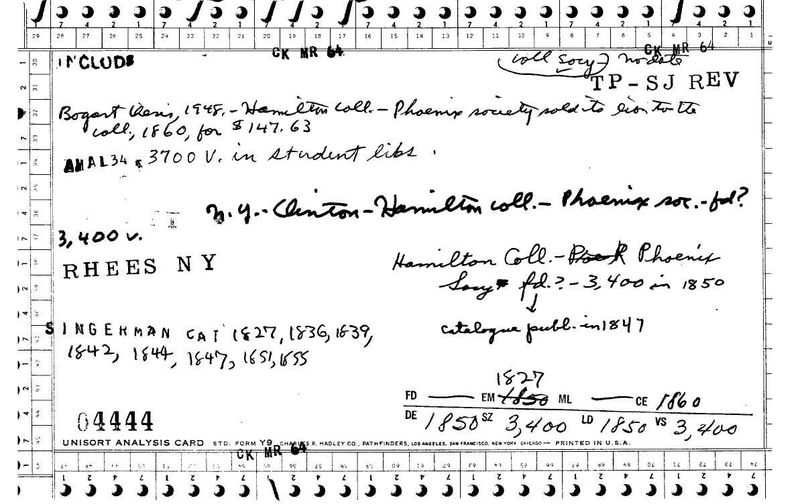 CK MR 64
CK MR 64
INCLUDS
coll socy no date
TP-SJ REV
Bogart thesis, 1948. - Hamilton Coll. - Phoenix society sold its lib. to the
coll, 1860, for $147.63
3700 V. in student libs.
N.Y. - Clinton - Hamilton coll. - Phoenix soc. - fd?
3,400 v.
RHEES NY
Hamilton Coll. - Phoenix
Socy fd.? - 3,400 in 1850
catalogue publ. in 1847
SINGERMAN CAT 1827, 1836, 1839,
1842, 1844, 1847, 1851, 1855
1827
FD — EM 1850 ML — CE 1860
DE 1850 SZ 3,400 LD 1850 VS 3,400
04444
UNISORT ANALYSIS CARD STD. FORM Y9 CHARLES R. HADLEY CO., PATHFINDERS, LOS ANGELES, SAN FRANCISCO, NEW YORK CHICAGO PRINTED IN U.S.A.
CK MR 64